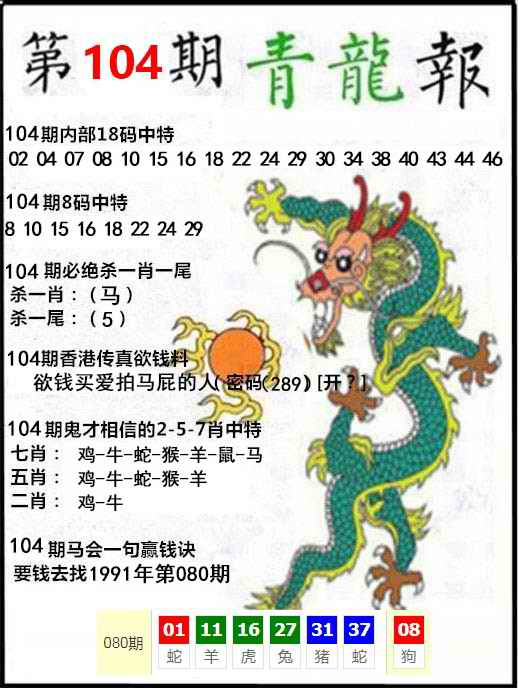 第104期 青龍報
104期内部18码中特
02 04 07 08 10 15 16 18 22 24 29 30 34 38 40 43 44 46
104期8码中特
8 10 15 16 18 22 24 29
104期必绝杀一肖一尾
杀一肖：（马）
杀一尾：（5）
104期香港传真欲钱料
欲钱买爱拍马屁的人(密码(289)[开？]
104期鬼才相信的2-5-7肖中特
七肖： 鸡-牛-蛇-猴-羊-鼠-马
五肖： 鸡-牛-蛇-猴-羊
二肖： 鸡-牛
104期马会一句赢钱诀
要钱去找1991年第080期
080期 01 11 16 27 31 37 08
蛇 羊 虎 兔 猪 蛇 狗